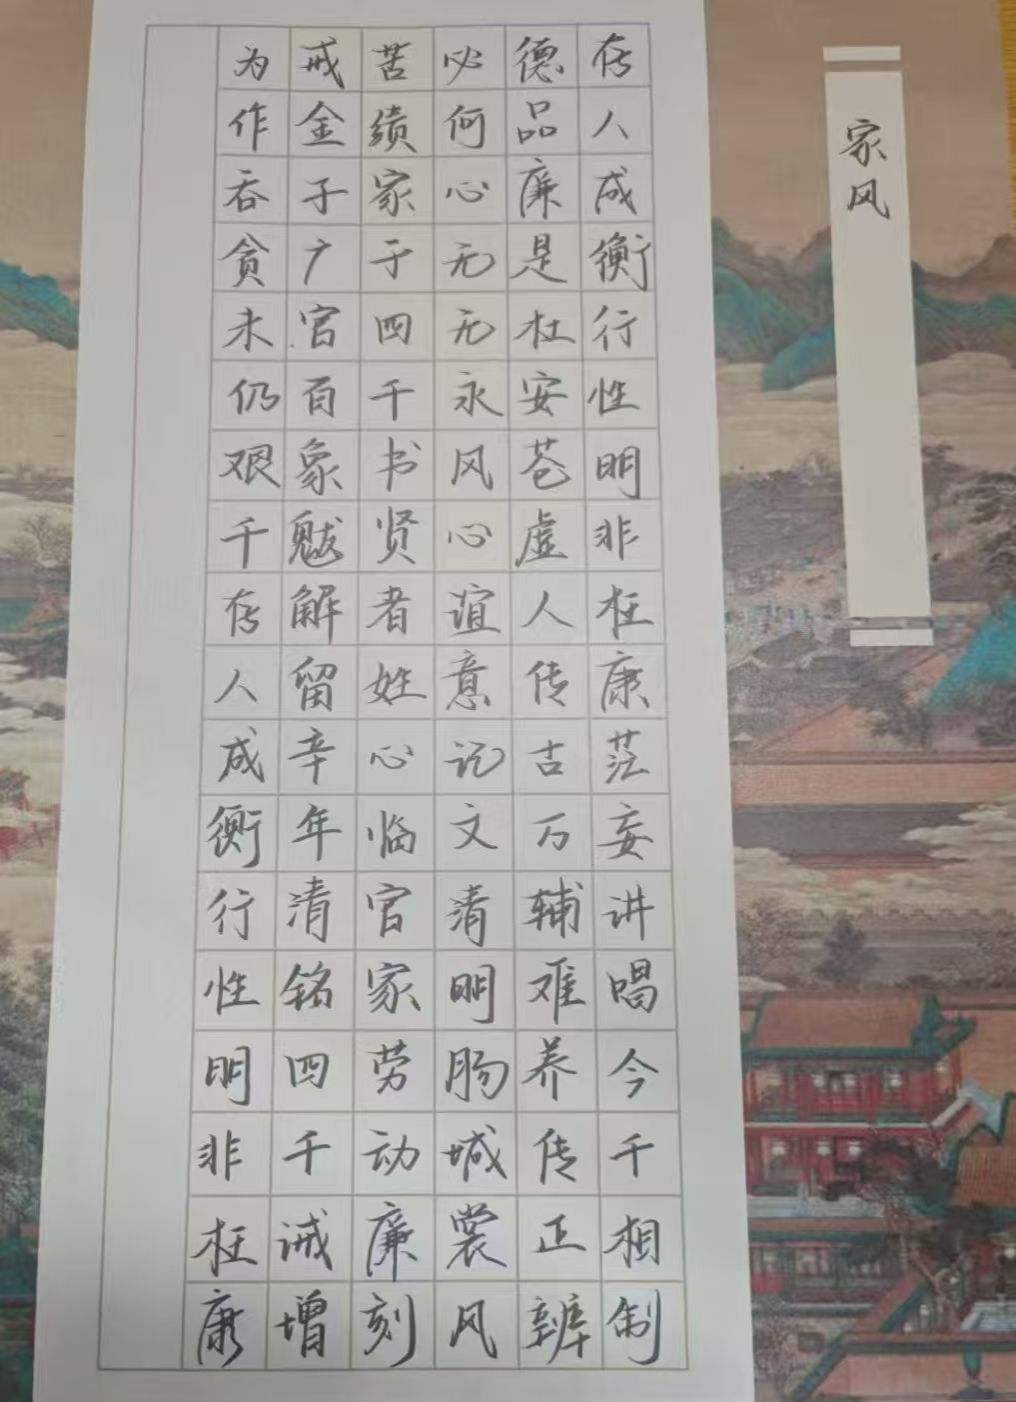 家风
存人成衡行性明非枉康茫妄讲唱今千相制
德品廉是杜安苍虚人传古万辅难养传正辨
必何心无无永风心谊意记文清明肠城裳风
苦绩家于四千书贤者姓心临官家劳动廉刻
戒金子广官百象魃解留辛年清铭四千诫增
为作吞贪未仍艰千存人成衡行性明非枉康